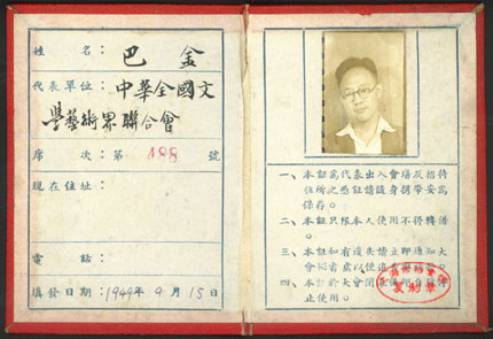 姓名：巴金
代表單位：中華全國文
學藝術界聯合會
席次：第 188 號
現在住址：
電話：
填發日期：1949年9月15日
一、本証為代表出入會場及招待
住所之憑証請隨身携帶妥為
保存。
二、本証只限本人使用不得轉借
。
三、本証如有遺失請立即通知大
會秘書處以便
四、本証於大會閉幕後
止使用。